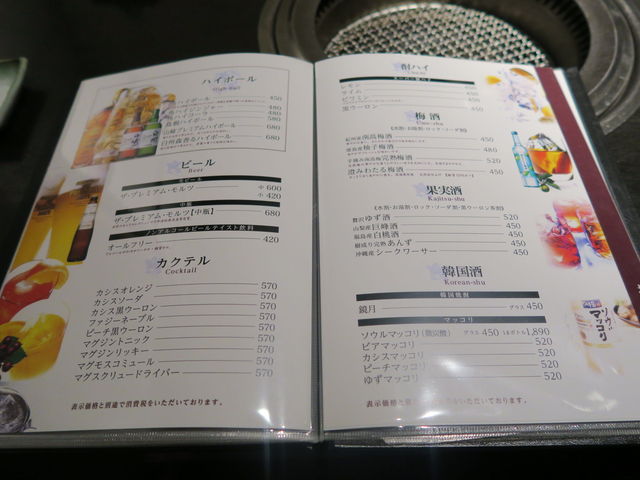 ハイボール
High-Ball
ハイボール 450
480
ハイコーラ 480
ハイボール 580
山崎プレミアムハイボール 680
白州森香るハイボール 680
ビール
Beer
ザ・プレミアム・モルツ 中 600
小 420
中瓶
ザ・プレミアム・モルツ【中瓶】 680
ノンアルコールビールテイスト飲料
オールフリー 420
カクテル
Cocktail
カシスオレンジ 570
カシスソーダ 570
カシス黒ウーロン 570
ファジーネーブル 570
ピーチ黒ウーロン 570
マグジントニック 570
マグジンリッキー 570
マグモスコミュール 570
マグスクリュードライバー 570
表示価格と別途で消費税をいただいております。
酎ハイ
レモン 450
ライム 450
450
黒ウーロン 450
梅酒
Ume-shu
《水割・お湯割・ロック・ソーダ割》
南高梅酒 450
柚子梅酒 480
完熟梅酒 520
澄みわたる梅酒 450
果実酒
Kajitsu-shu
《水割・お湯割・ロック・ソーダ割・黒ウーロン茶割》
贅沢ゆず酒 520
山梨産巨峰酒 450
福島産白桃酒 450
樹成り完熟あんず 450
沖縄産シークワーサー 450
韓国酒
Korean-shu
韓国焼酎
鏡月 グラス 450
マッコリ
ソウルマッコリ(微炭酸) グラス 450 1,890
ビアマッコリ 520
カシスマッコリ 520
ピーチマッコリ 520
ゆずマッコリ 520
表示価格と
いただいております。
ソウル
マッコリ